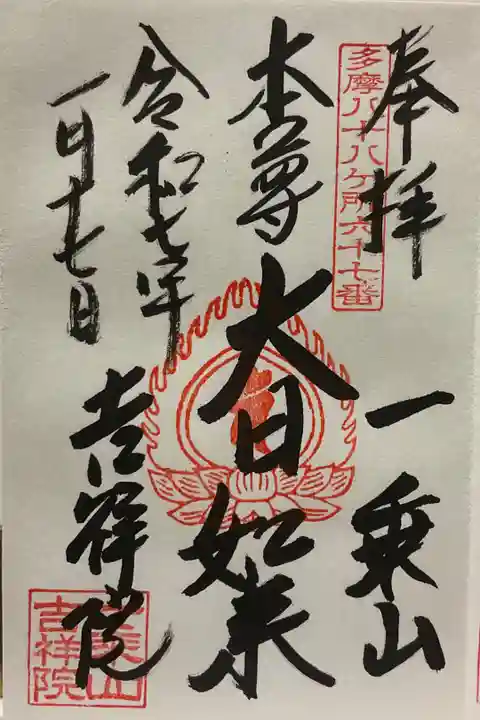 奉拝
多摩八十八ヶ所六十七番
一乗山
本尊 大日如来
令和七年
一月十七日
吉祥院
一乗山
吉祥院